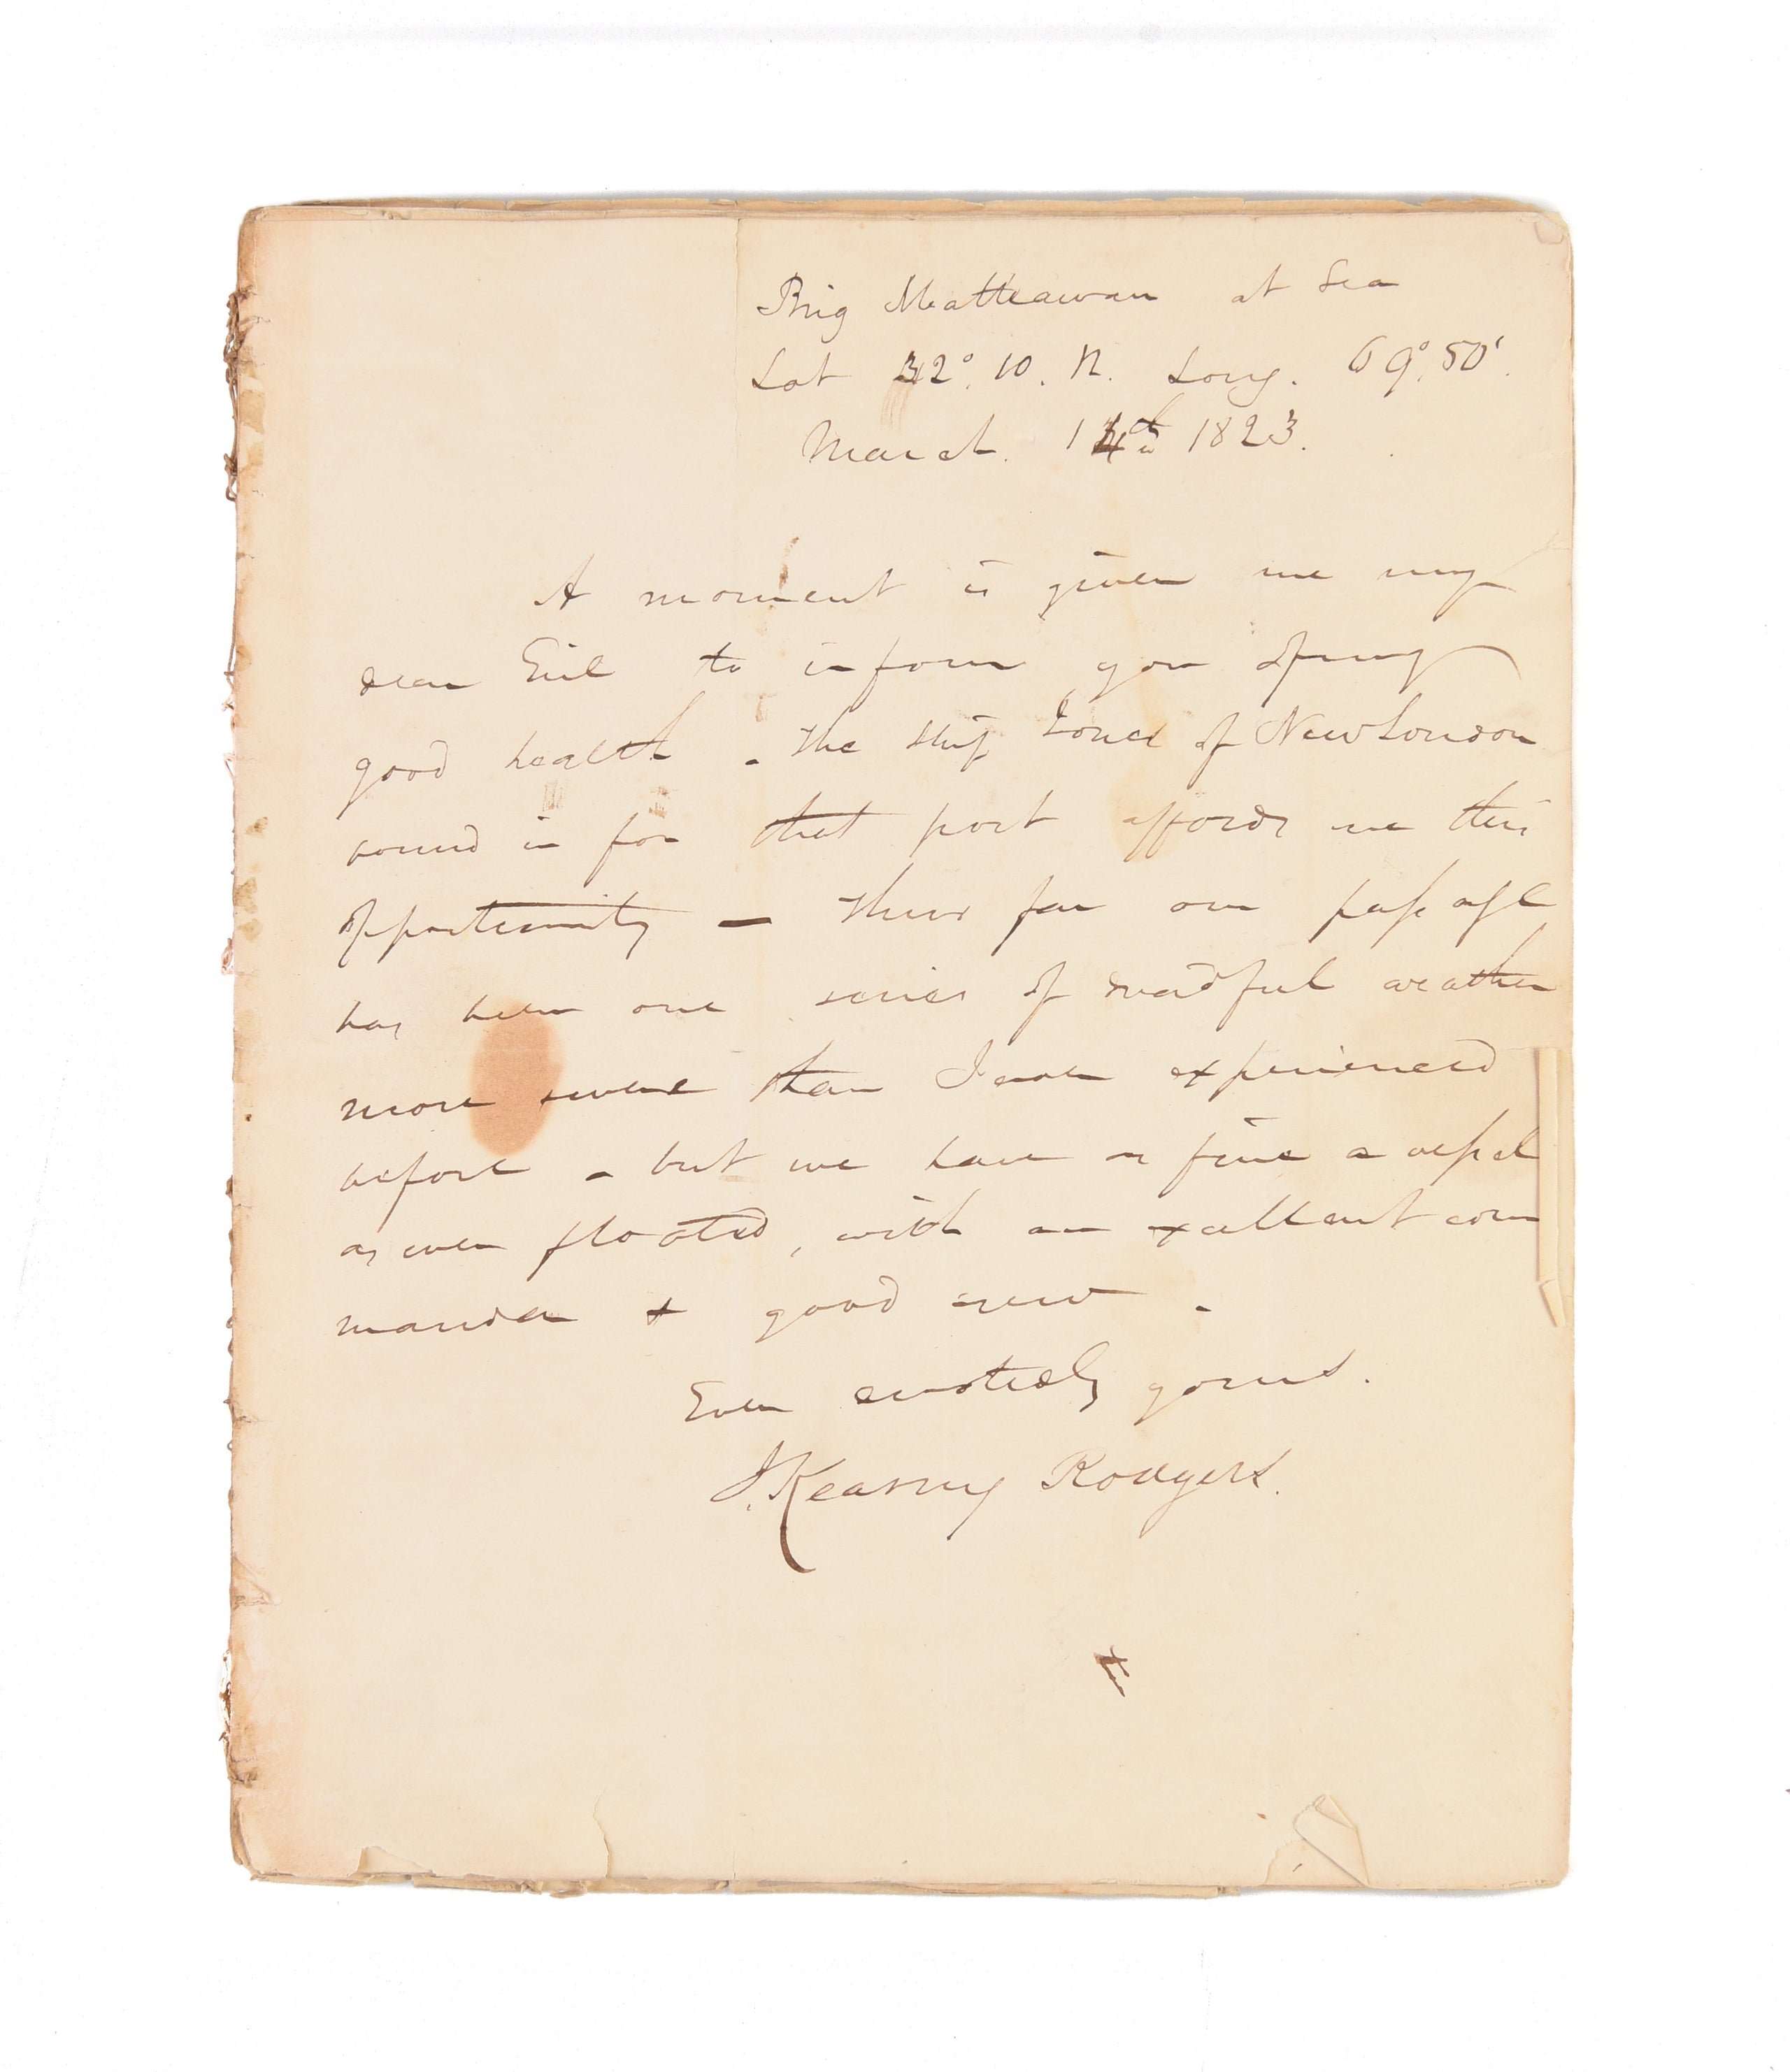 Brig Matteawan at Sea
Lat 32°. 10. N. Long. 69°. 50'.
March. 14th 1823.
A moment is given me my
dear Girl to inform you of my
good health - The Ship Jones of New London
bound in for that port affords me this
opportunity - Thus far our passage
has been one series of dreadful weather
more severe than I ever experienced
before - but we have as fine a vessel
as ever floated, with an excellent com
mander & good crew -
Ever devotedly yours.
J. Kearny Rodgers.